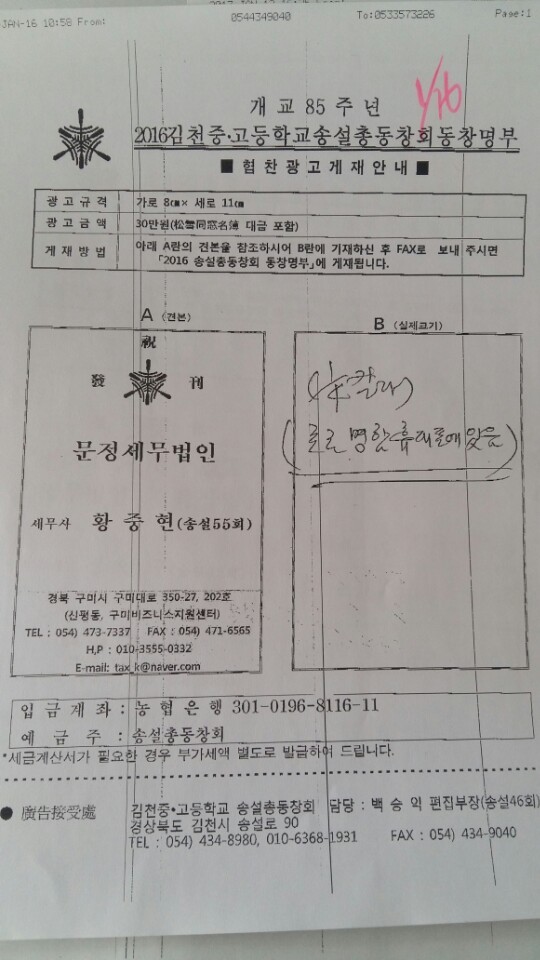 JAN-16 10:58 From: 0544349040 To:0533573226 Page:1
개교 85주년
2016김천중·고등학교송설총동창회동창명부
■ 협찬광고게재안내 ■
광고규격 가로 8㎝× 세로 11㎝
광고금액 30만원(松雪同窓名簿 대금 포함)
게재방법 아래 A란의 견본을 참조하시어 B란에 기재하신 후 FAX로 보내 주시면
「2016 송설총동창회 동창명부」에 게재됩니다.
A (견본)
B (실제크기)
祝
發 刊
문정세무법인
세무사 황중현(송설55회)
경북 구미시 구미대로 350-27, 202호
(신평동, 구미비즈니스지원센터)
TEL : 054) 473-7337 FAX : 054) 471-6565
H,P : 010-3555-0332
E-mail: tax_k@naver.com
입금계좌 : 농협은행 301-0196-8116-11
예금주 : 송설총동창회
*세금계산서가 필요한 경우 부가세액 별도로 발급하여 드립니다.
● 廣告接受處 김천중·고등학교 송설총동창회 담당 : 백승익 편집부장(송설46회)
경상북도 김천시 송설로 90
TEL : 054) 434-8980, 010-6368-1931 FAX : 054) 434-9040